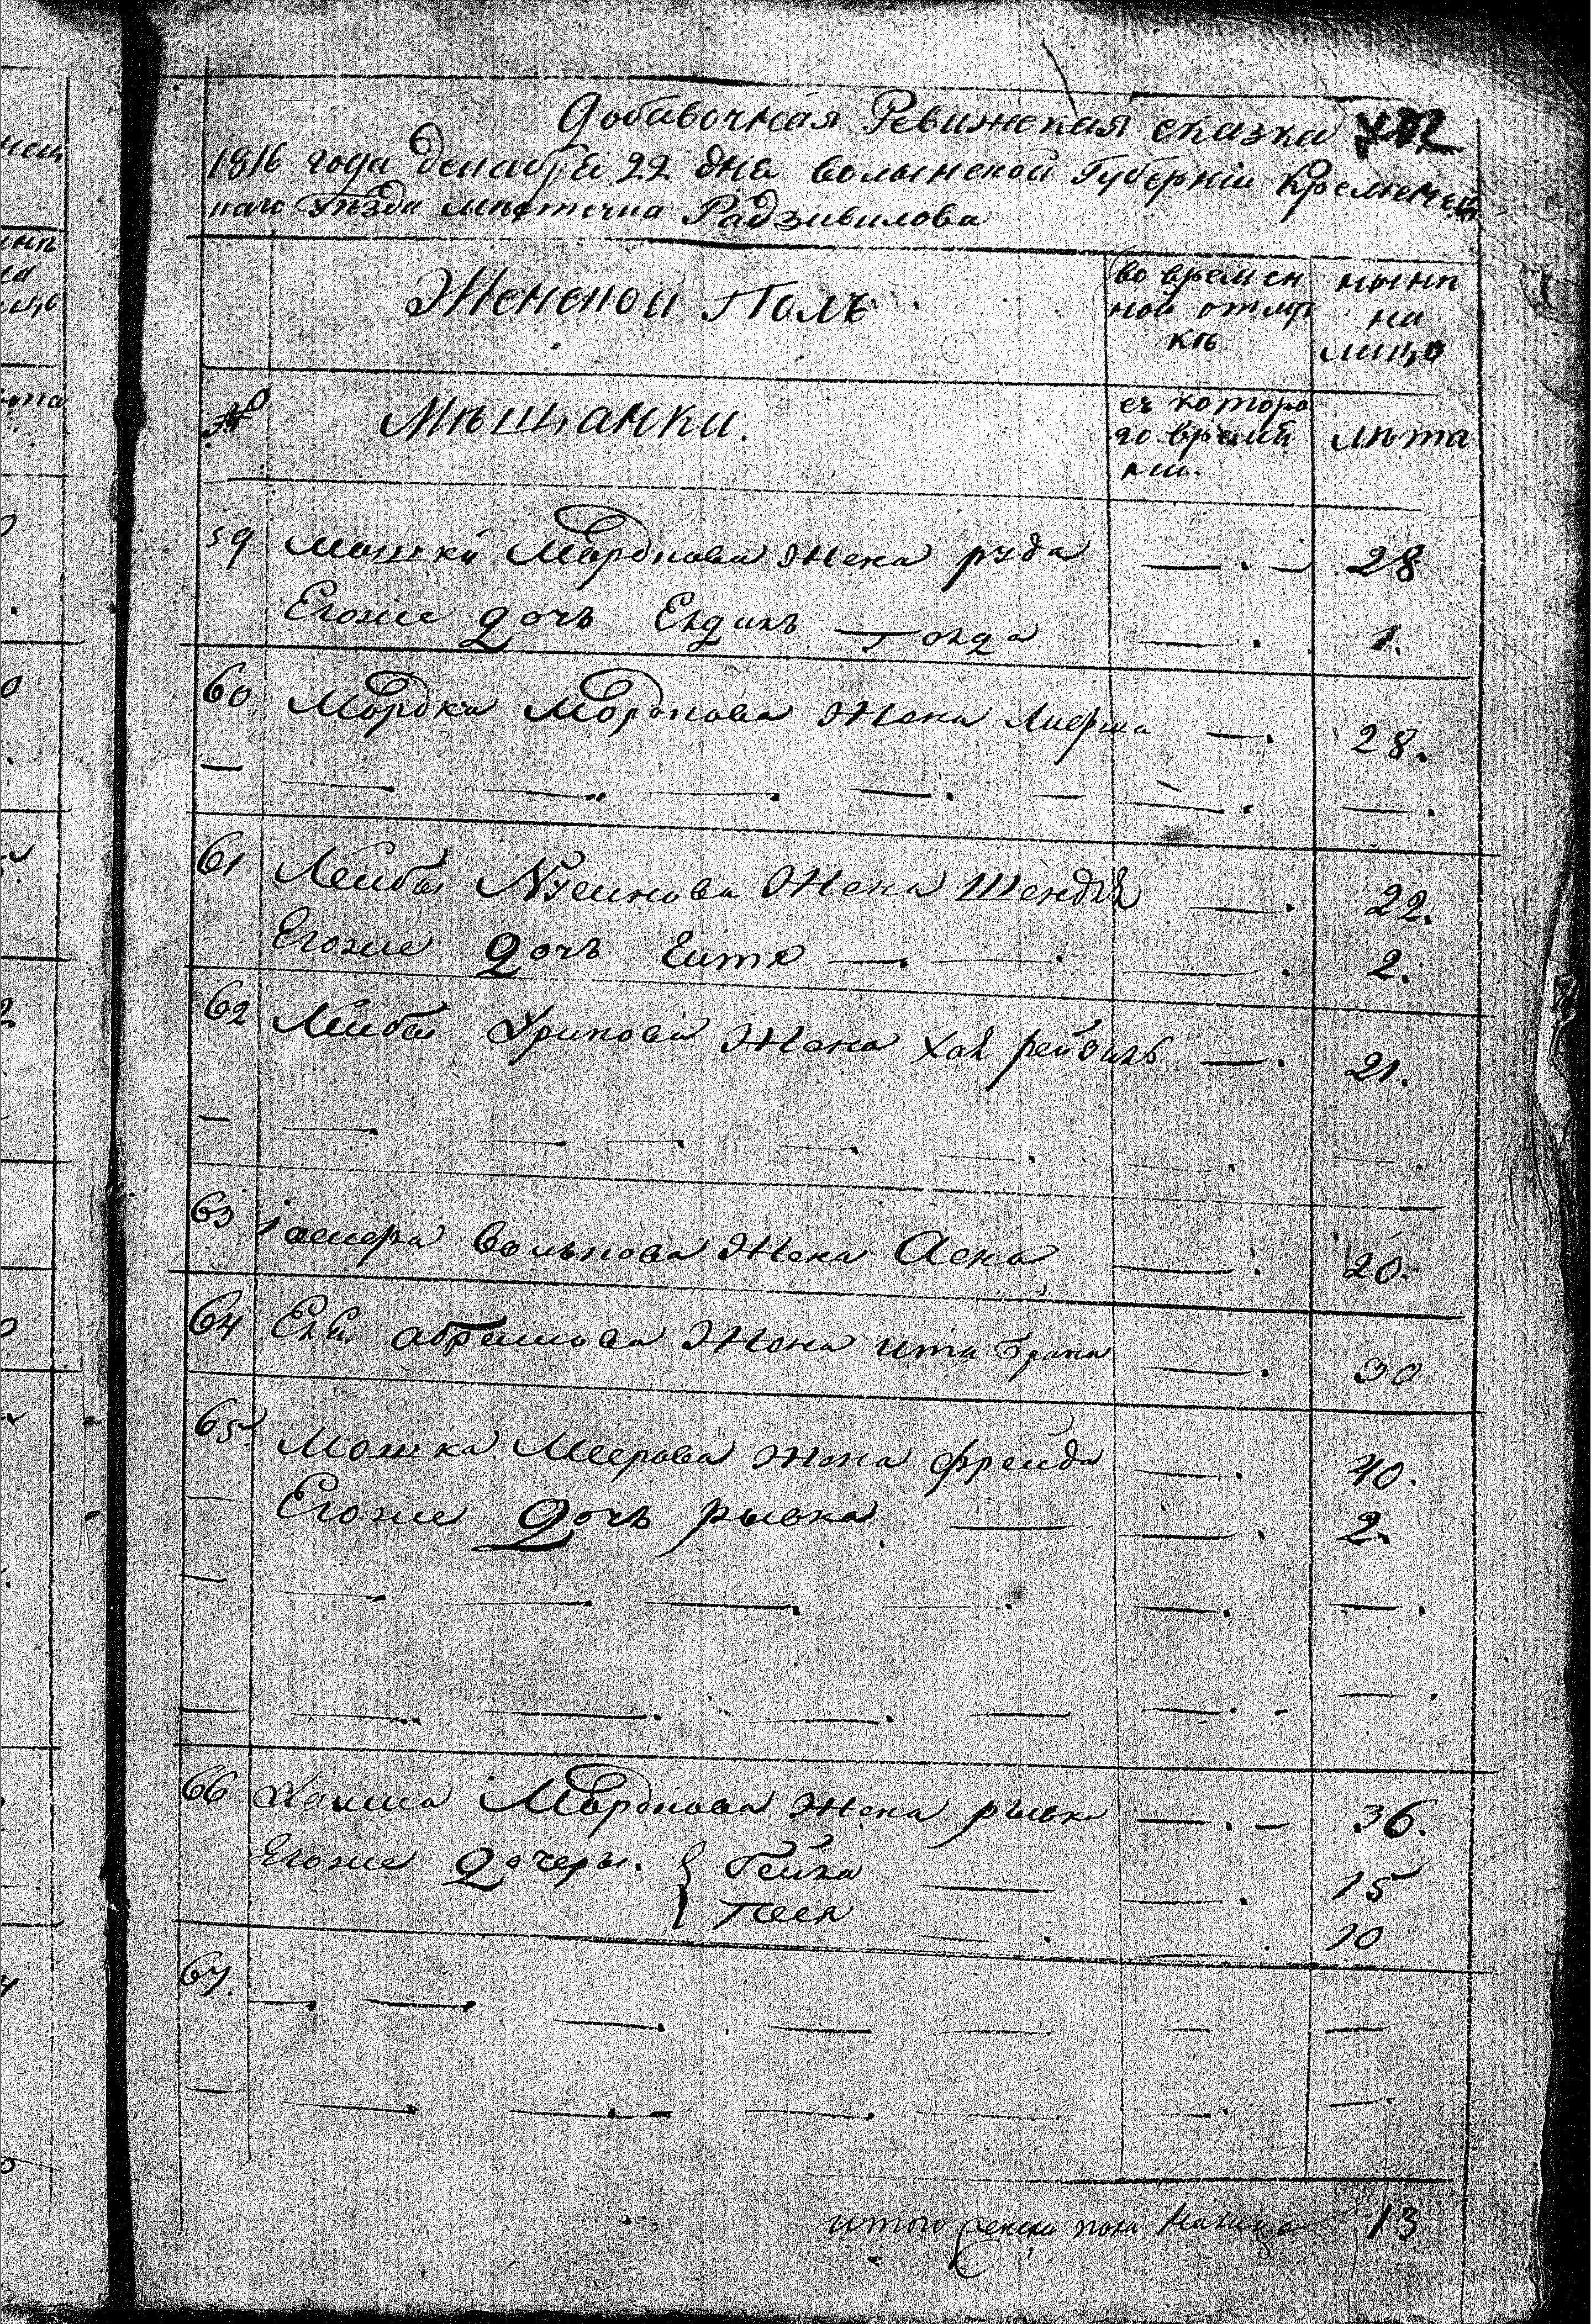 Добавочная Ревижская сказка
1816 года декабря 22 дня волынской Губерніи Кременец
каго уѣзда мѣстечка Радзивилова
Женской Полъ
во времен
ной отлуч
кѣ
нынѣ
на
лицо
№
Мѣщанки.
съ которо
го время
ни.
лѣта
59 Мошки Мордкова жена руда 28
Егоже дочь 1.
60 Мордка Мордкова жена 28.
61 Лейба жена Шендля 22.
Егоже дочь Ейтя 2.
62 Лейба жена хая рейзель 21.
63 волькова жена Аска 20.
64 абрамова жена ита брана 30
65 Мошка Меерова жена фрейда 40.
Егоже дочь рывка 2.
66 Хаима Мордкова жена рывка 36.
Егоже дочеры. Гейка 15
Песя 10
67.
итого женска пола налицо 13